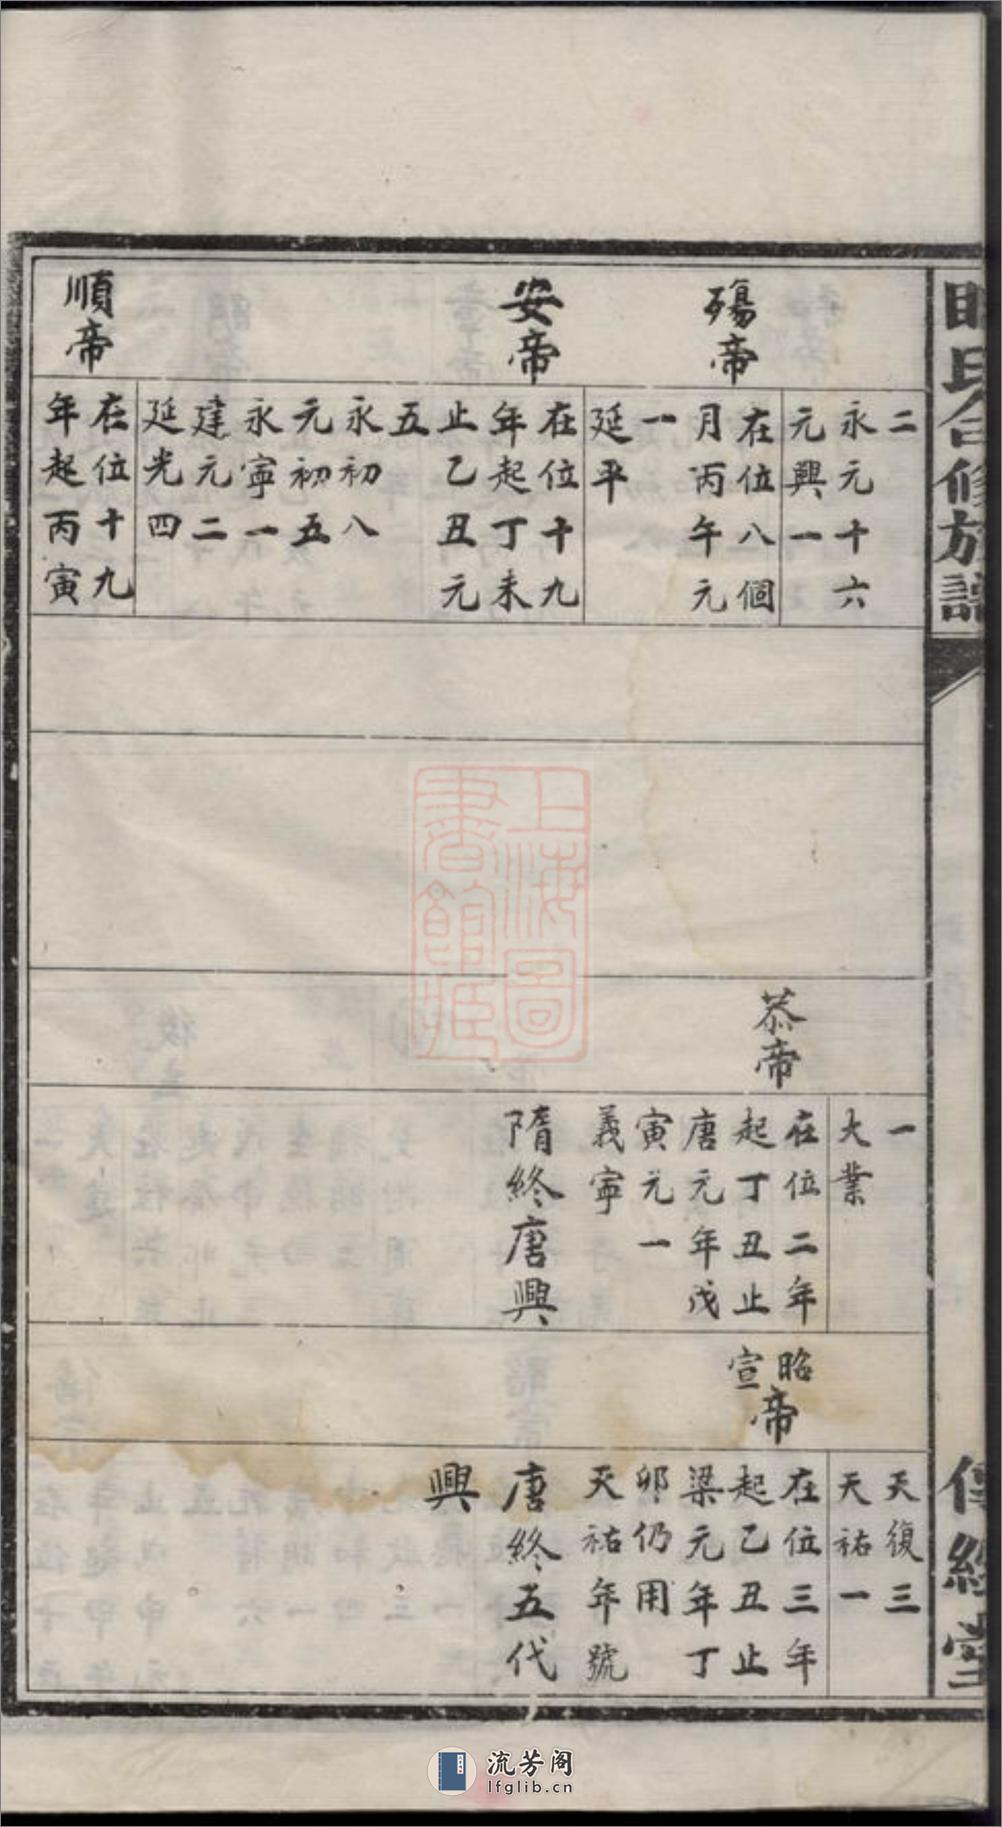 氏合修族譜
傳經堂
二
永元十六
元興一
殤帝
在位八個
月丙午元
一
延平
安帝
在位十九
年起丁未
止乙丑元
五
永初八
元初五
永寧一
建元二
延光四
順帝
在位十九
年起丙寅
一
大業
恭帝
在位二年
起丁丑止
唐元年戊
寅元一
義寧
隋終唐興
天復三
天祐一
昭宣帝
在位三年
起乙丑止
梁元年丁
卯仍用
天祐年號
唐終五代
興
上海圖
書館藏
流芳阁
lfglib.cn